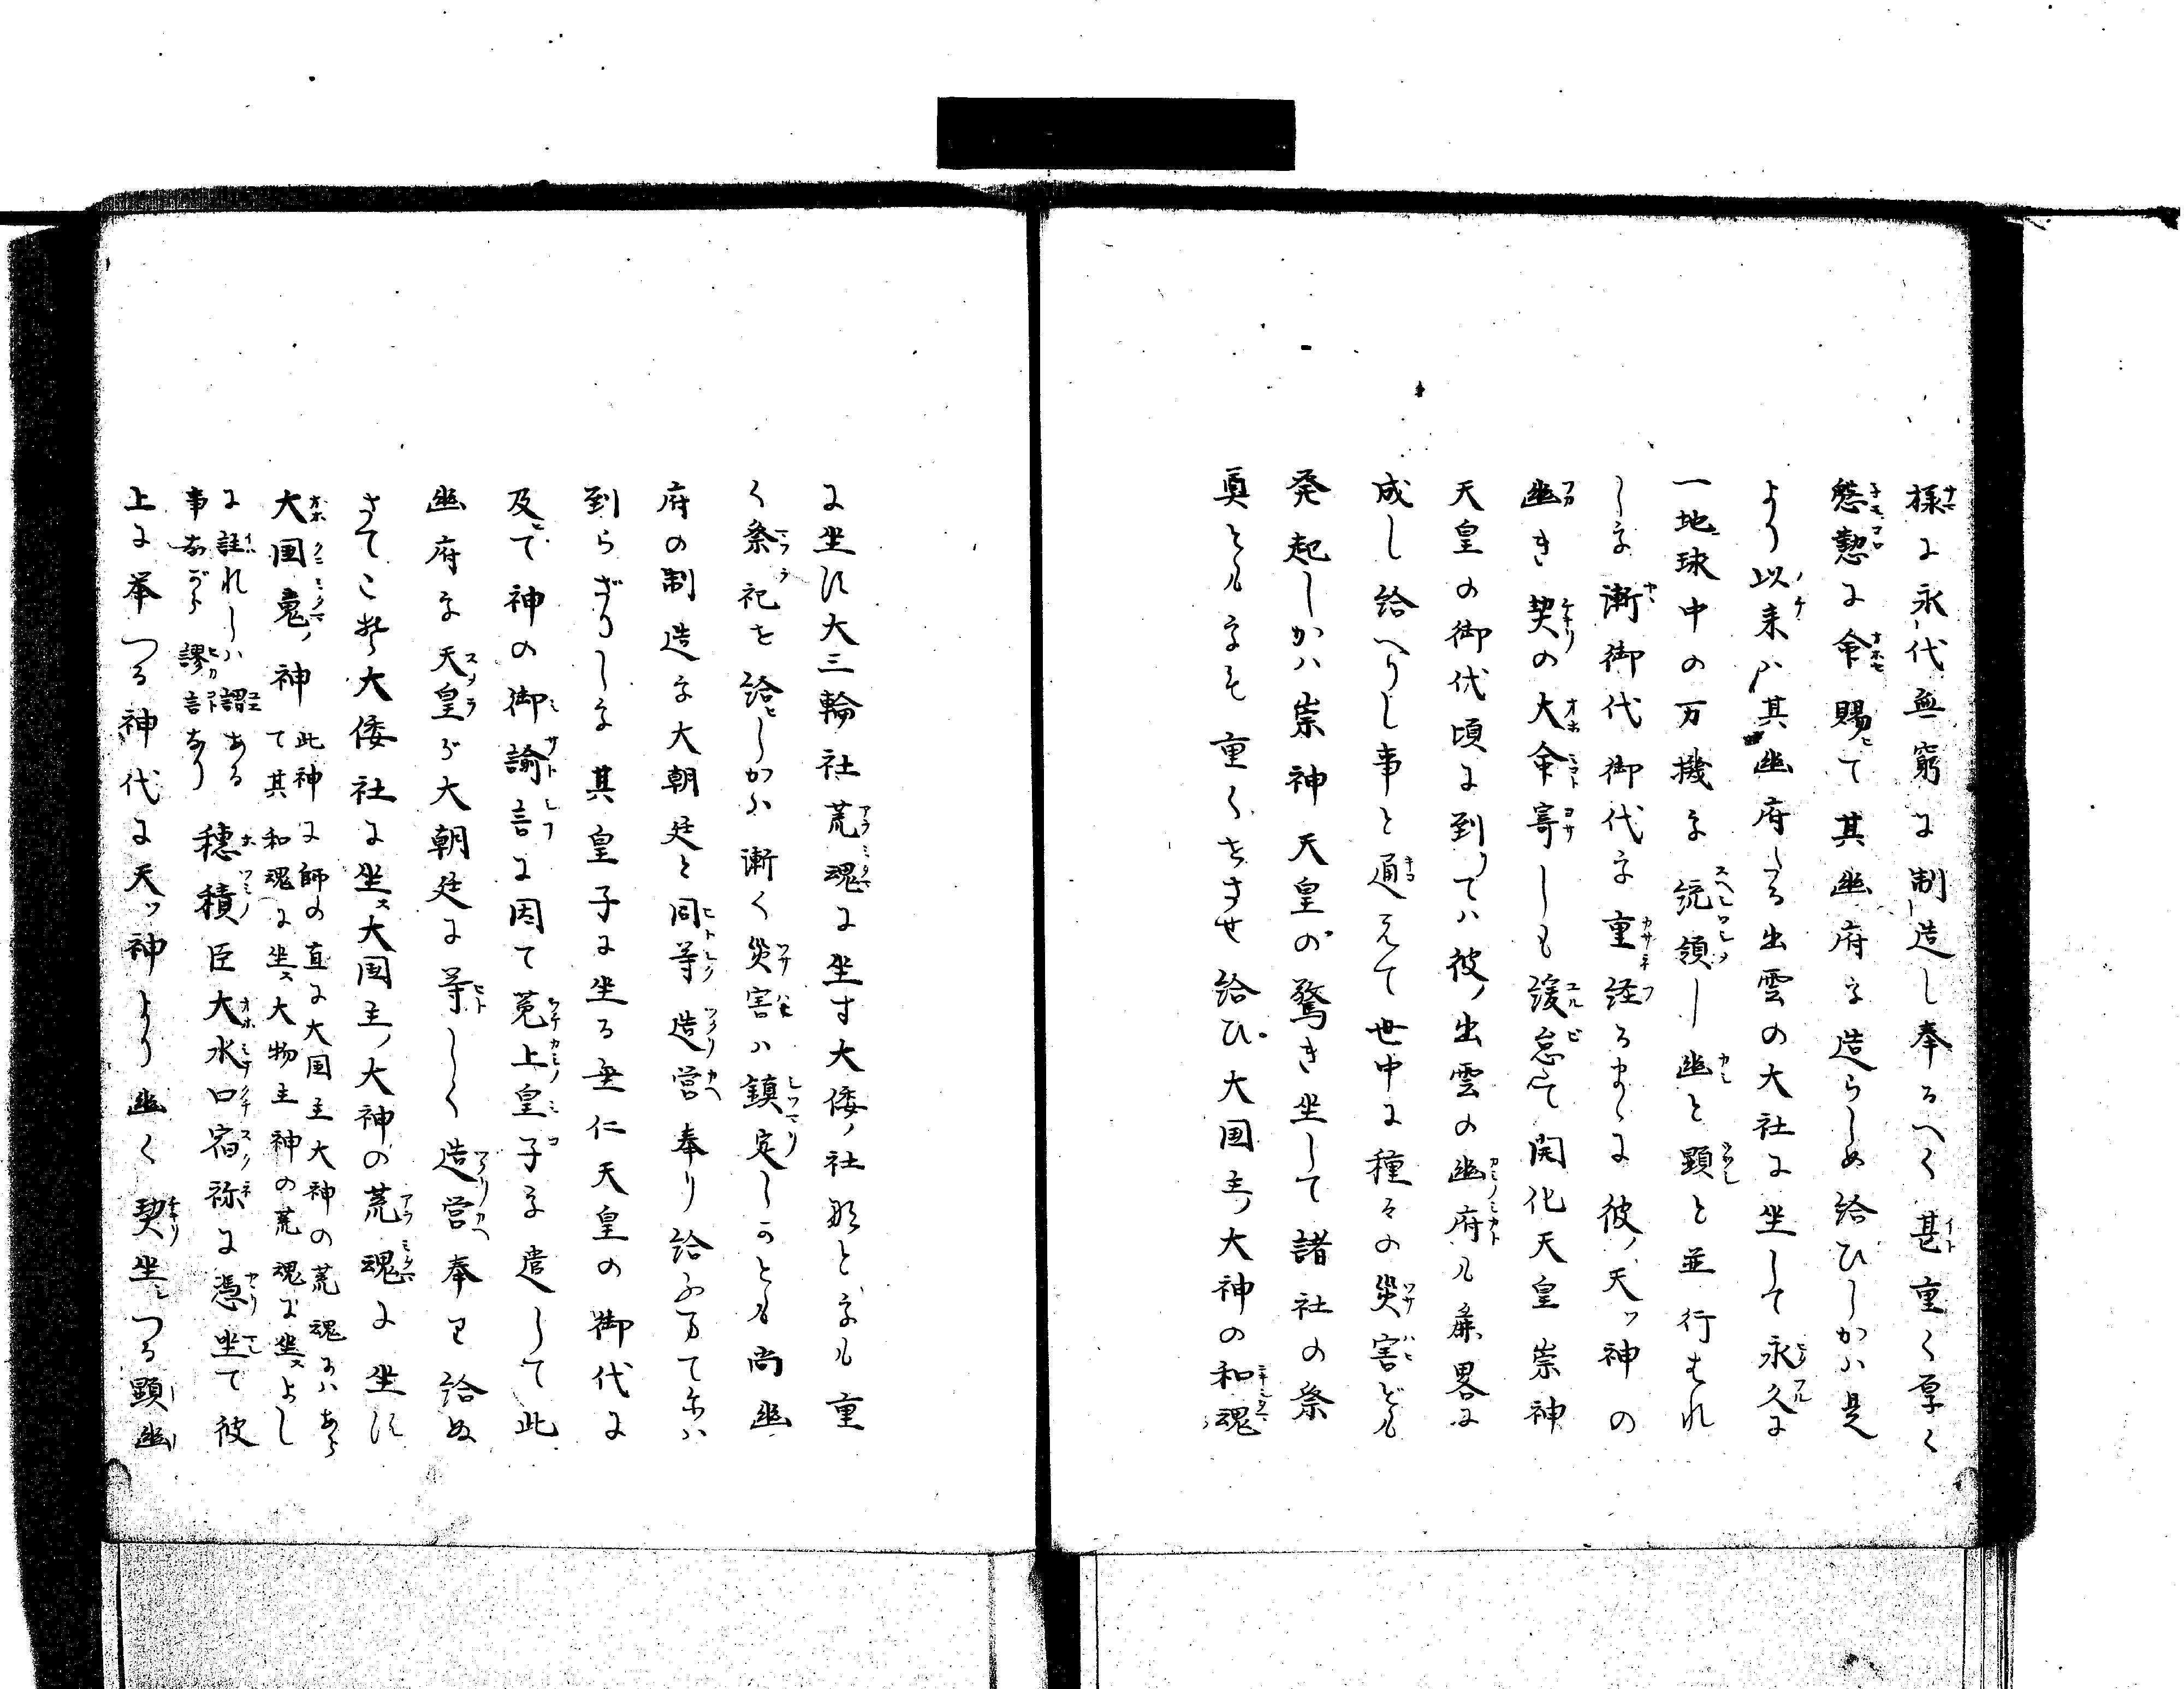 様に永代無窮に制造し奉るへく甚重く厚く
慇懃に命賜て其幽府を造らしめ給ひしかハ是
より以来ハ其幽府たる出雲の大社に坐して永久に
一地球中の万機を統領し幽と顕と並行はれ
しを漸御代御代を重経るまゝに彼ノ天ツ神の
幽き契の大命寄しも緩怠て開化天皇崇神
天皇の御代頃に到りてハ彼ノ出雲の幽府も麁畧に
成し給へりし事と通えて世中に種々の災害ども
発起しかハ崇神天皇の驚き坐して諸社の祭
奠ともをも重くせさせ給ひ大国主ノ大神の和魂
に坐す大三輪社荒魂に坐す大倭ノ社形とをも重
く祭祀を給しかハ漸く災害ハ鎮定しかとも尚幽
府の制造を大朝廷と同等造営奉り給ふまてにハ
到らざりしを其皇子に坐る垂仁天皇の御代に
及て神の御諭言に因て菟上皇子を遣して此
幽府を天皇が大朝廷に等しく造営奉り給ぬ
さてこそ大倭社に坐ス大国主ノ大神の荒魂に坐す
大国魂ノ神
此神に師の直に大国主大神の荒魂にハあら
て其和魂に坐ス大物主神の荒魂に坐スよし
に註れしハ謂ある
事ながら謬言なり
穂積臣大水口宿祢に憑坐て彼
上に挙つる神代に天ツ神より幽く契坐つる顕幽